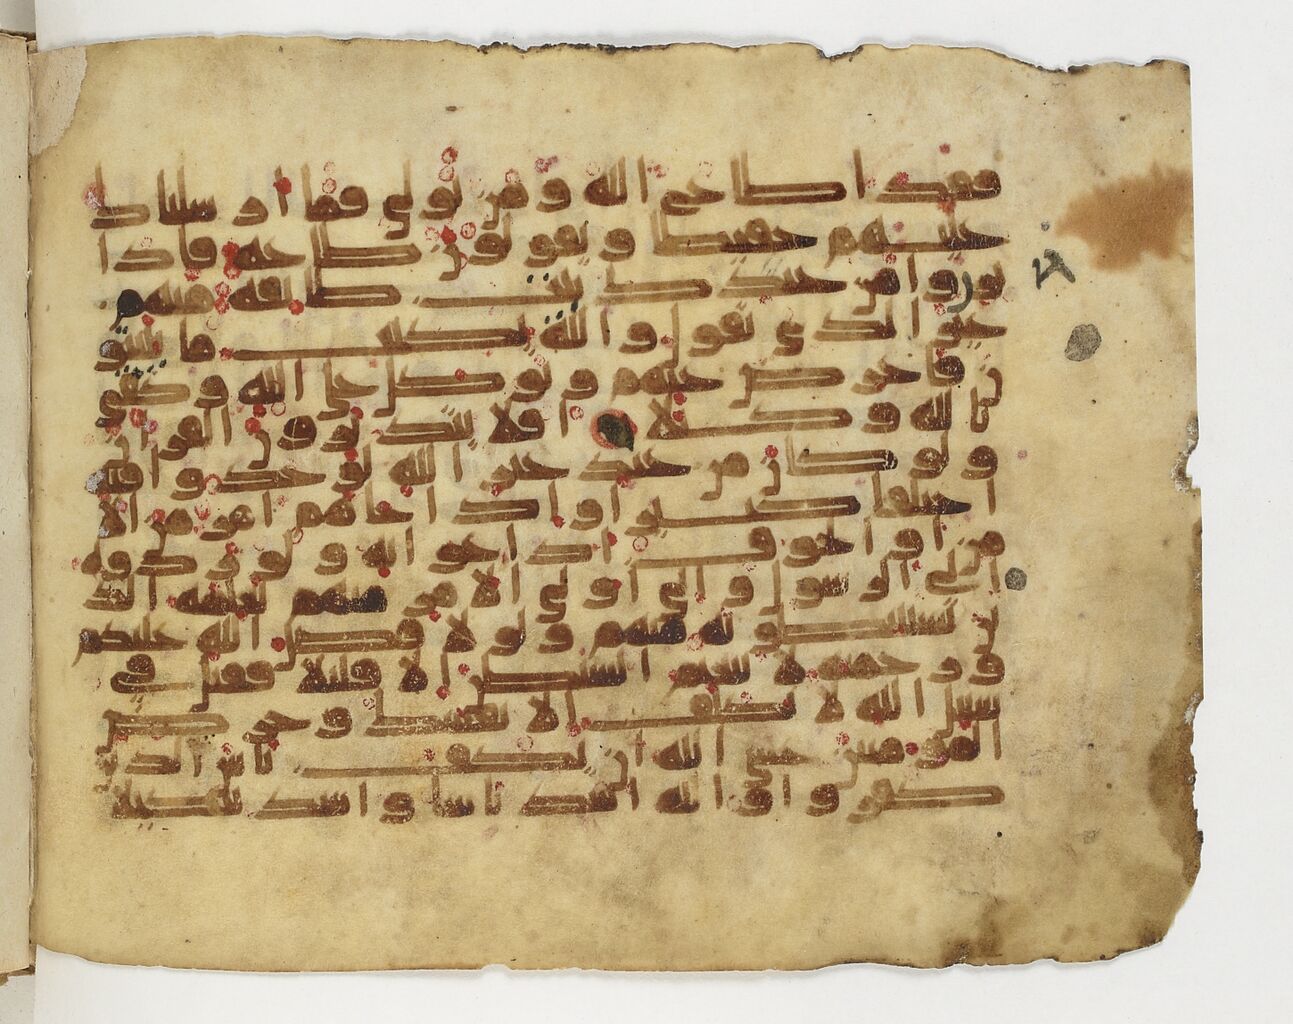 فقد اطاع الله ومن تولى فما ارسلناك
عليهم حفيظا ويقولون طاعه فاذا
برزوا من عندك بيت طايفه منهم
غير الذي تقول والله يكتب ما يبيتو
ن فاعرض عنهم وتوكل على الله وكفى
بالله وكيلا افلا يتدبرون القران
ولو كان من عند غير الله لوجدوا فيه
اختلفا كثيرا واذا جاهم امر من الا
من او الخوف اذاعوا به ولو ردوه
الى الرسول والى اولي الامر منهم لعلمه الذ
ين يستنبطونه منهم ولولا فضل الله عليكم
ورحمته لاتبعتم الشيطن الا قليلا فقتل في
سبيل الله لا تكلف الا نفسك وحرض
المومنين عسى الله ان يكف باس الذين
كفروا والله اشد باسا واشد تنكيلا